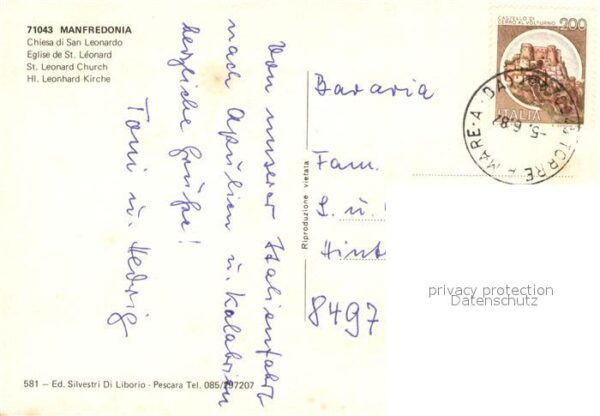 71043 MANFREDONIA
Chiesa di San Leonardo
Eglise de St. Léonard
St. Leonard Church
Hl. Leonhard Kirche
Von unserer Italienfahrt
nach Apulien u. Kalabrien
herzliche Grüße!
Toni u. Hedwig
581 — Ed. Silvestri Di Liborio - Pescara Tel. 085/297207
Riproduzione vietata
Bavaria
Fam.
S. u.
Hint
8497
CASTELLO DI
CERRO AL VOLTURNO
200
ITALIA
TORRE A MARE
5.6.87
privacy protection
Datenschutz